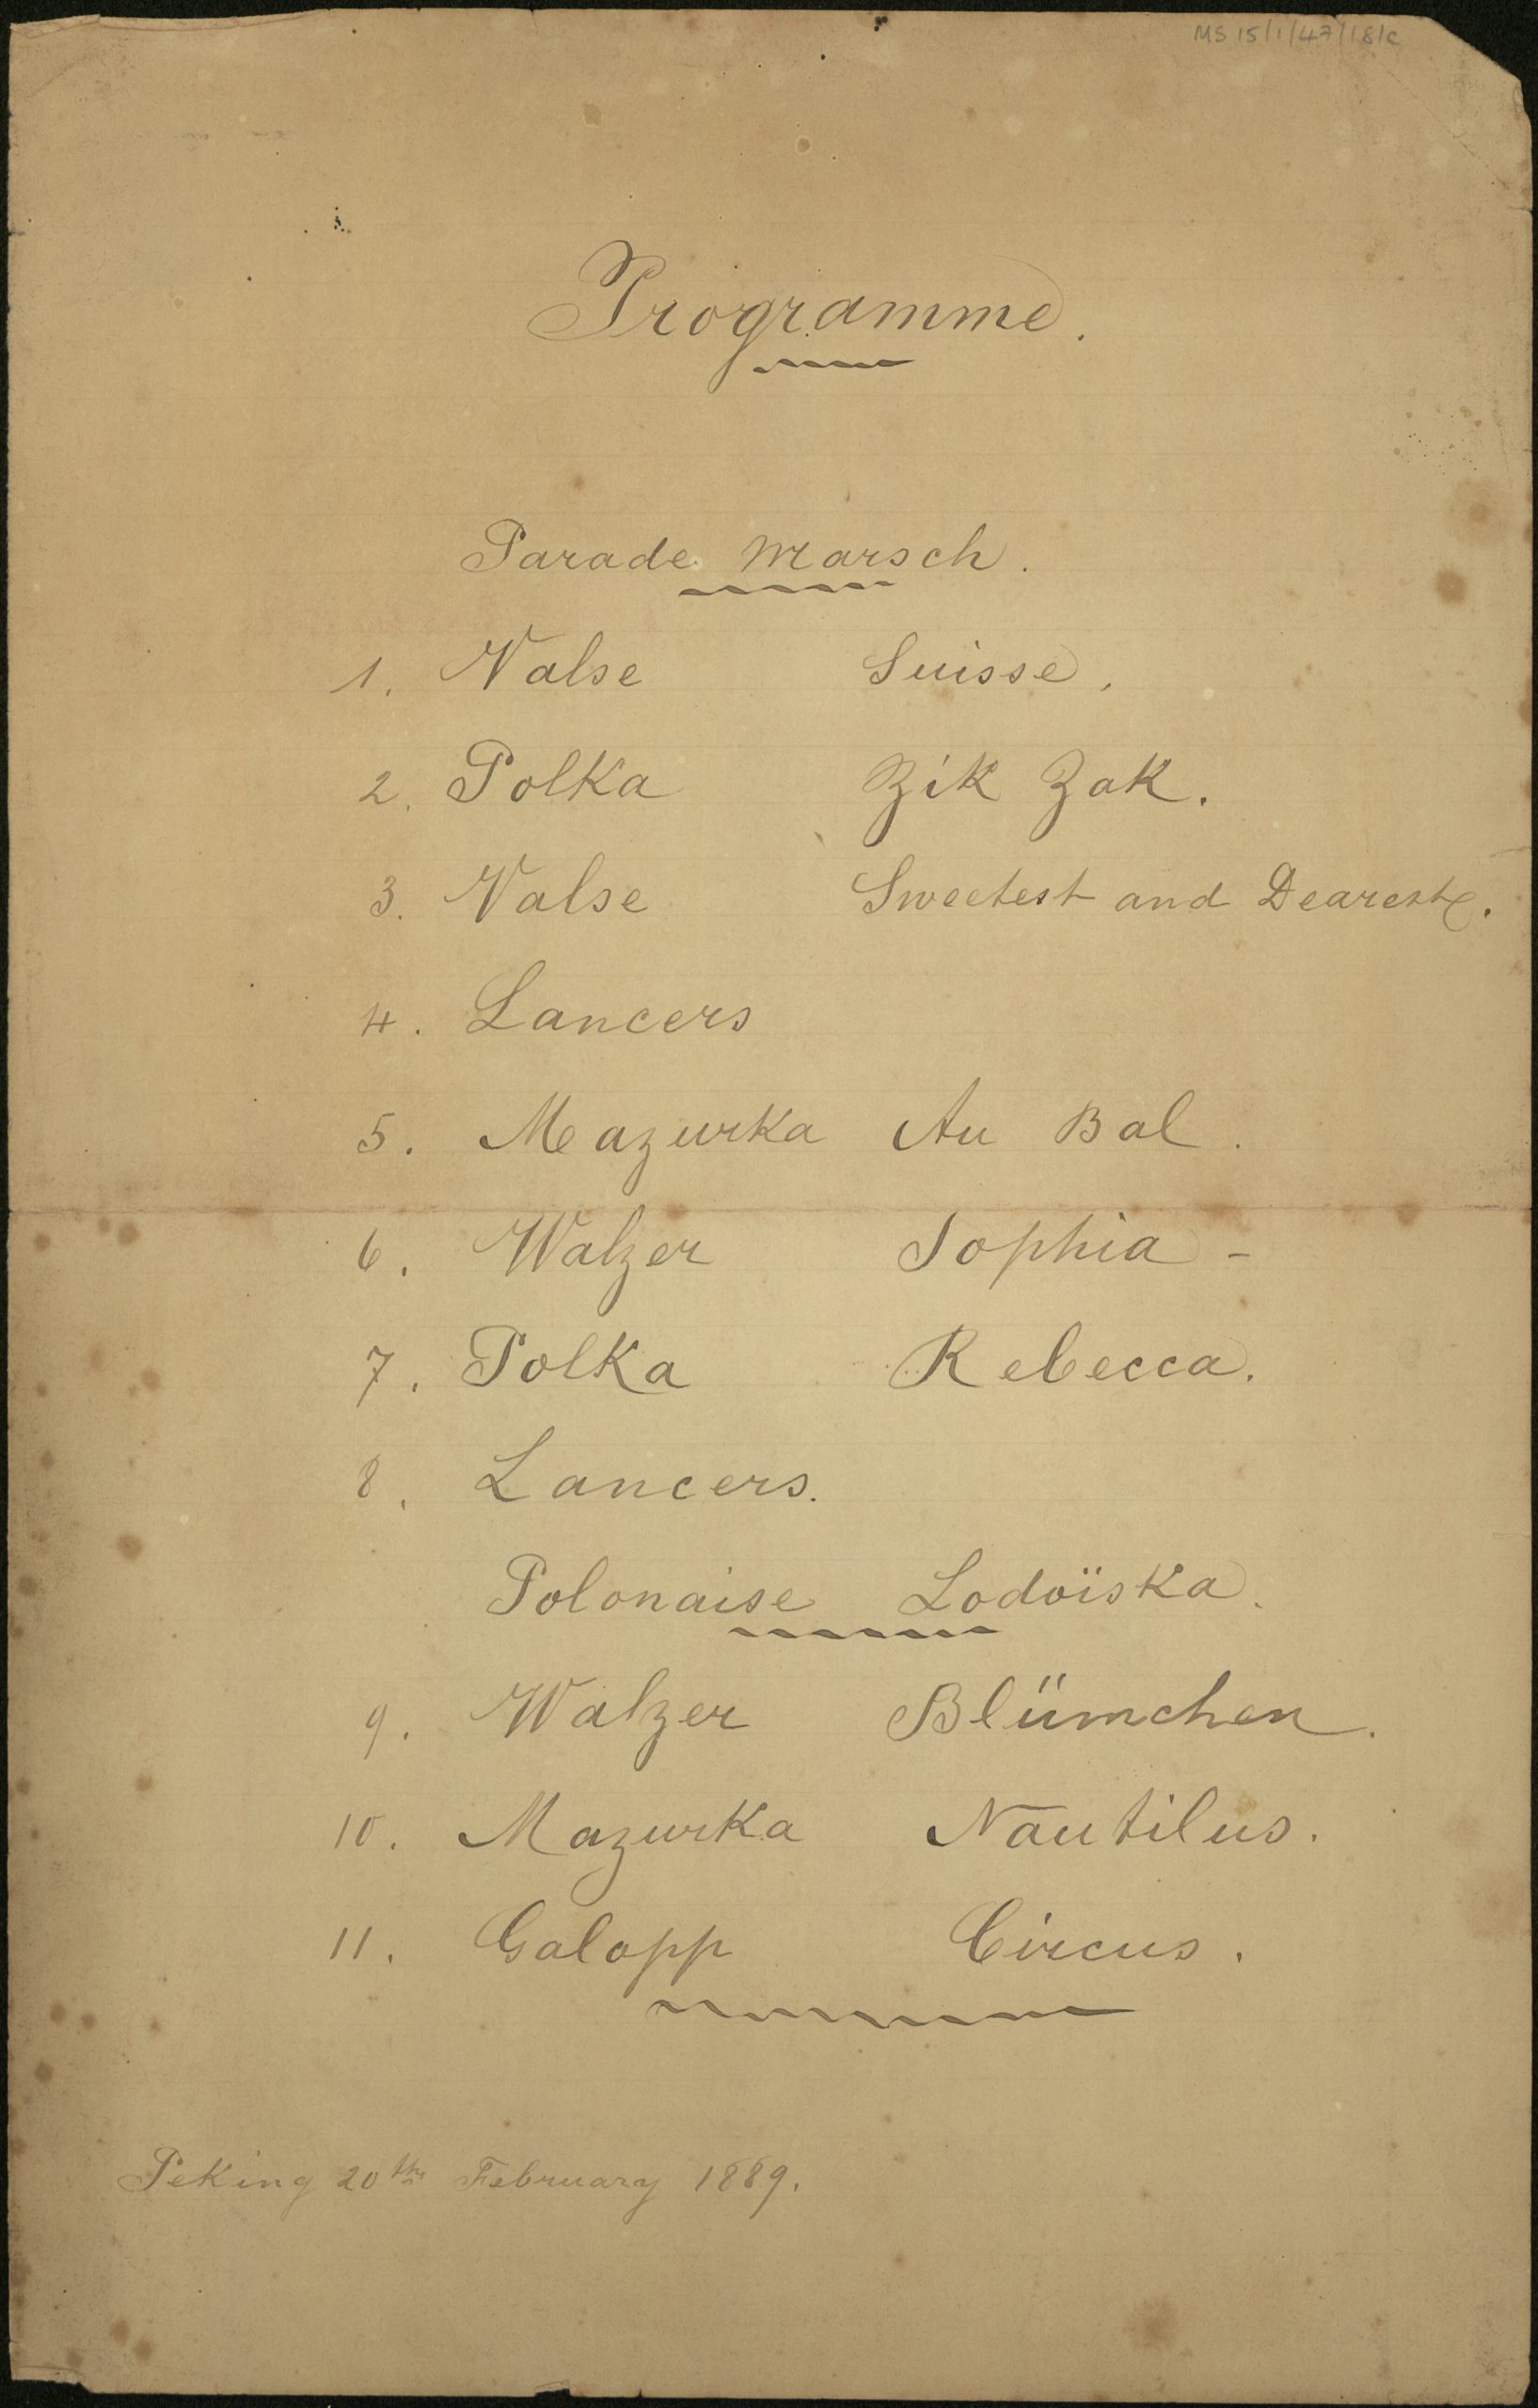 MS 15/1/47/18/c
Programme.
Parade Marsch.
1. Valse Suisse.
2. Polka Zik Zak.
3. Valse Sweetest and Dearest.
4. Lancers
5. Mazurka Au Bal.
6. Walzer Sophia -
7. Polka Rebecca.
8. Lancers.
Polonaise Lodoïska.
9. Walzer Blümchen.
10. Mazurka Nautilus.
11. Galopp Circus.
Peking 20th February 1889.